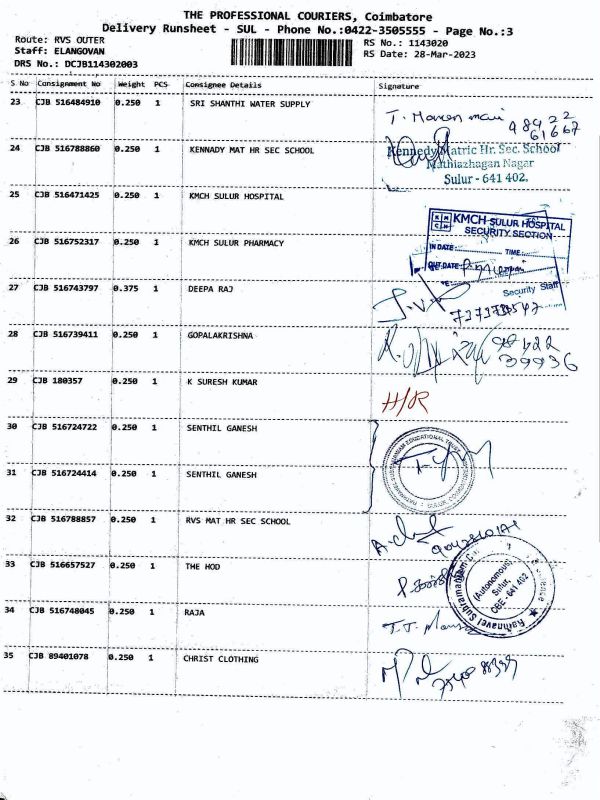 THE PROFESSIONAL COURIERS, Coimbatore
Delivery Runsheet - SUL - Phone No.:0422-3505555 - Page No.:3
Route: RVS OUTER
Staff: ELANGOVAN
DRS No.: DCJB114302003
RS No.: 1143020
RS Date: 28-Mar-2023
S No Consignment No Weight PCS Consignee Details Signature
23 CJB 516484910 0.250 1 SRI SHANTHI WATER SUPPLY
98922
61667
24 CJB 516788860 0.250 1 KENNADY MAT HR SEC SCHOOL
Kennedy Matric Hr. Sec. School
Mathiazhagan Nagar
Sulur - 641 402.
25 CJB 516471425 0.250 1 KMCH SULUR HOSPITAL
KMCH SULUR HOSPITAL
SECURITY SECTION
IN DATE: TIME:
OUT DATE:
Security Staff
26 CJB 516752317 0.250 1 KMCH SULUR PHARMACY
27 CJB 516743797 0.375 1 DEEPA RAJ
28 CJB 516739411 0.250 1 GOPALAKRISHNA
39936
29 CJB 180357 0.250 1 K SURESH KUMAR
H/R
30 CJB 516724722 0.250 1 SENTHIL GANESH
31 CJB 516724414 0.250 1 SENTHIL GANESH
32 CJB 516788857 0.250 1 RVS MAT HR SEC SCHOOL
33 CJB 516657527 0.250 1 THE HOD
Rathnavel Subramaniam
(Autonomous)
Sulur,
CBE - 641 402
34 CJB 516748045 0.250 1 RAJA
35 CJB 89401078 0.250 1 CHRIST CLOTHING